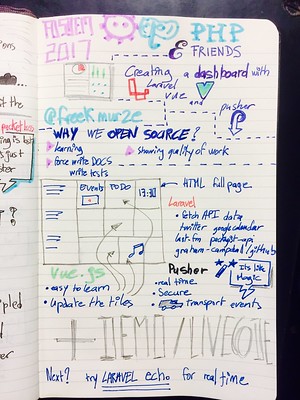 FOSDEM
2017
PHP
& FRIENDS
Creating a dashboard with
Laravel
Vue
and
pusher
@freekmurze
WHY WE OPEN SOURCE?
learning
sharing quality of work
force write DOCS
write tests
Events
TO DO
13:31
HTML full page
Laravel
• fetch API data
twitter google calendar
last-fm packagist-api
graham-campbell/github
Vue.js
• easy to learn
• update the tiles
Pusher
• real time
• Secure
• transport events
It's like
Magic
Next? try LARAVEL echo for real time
pocket
just